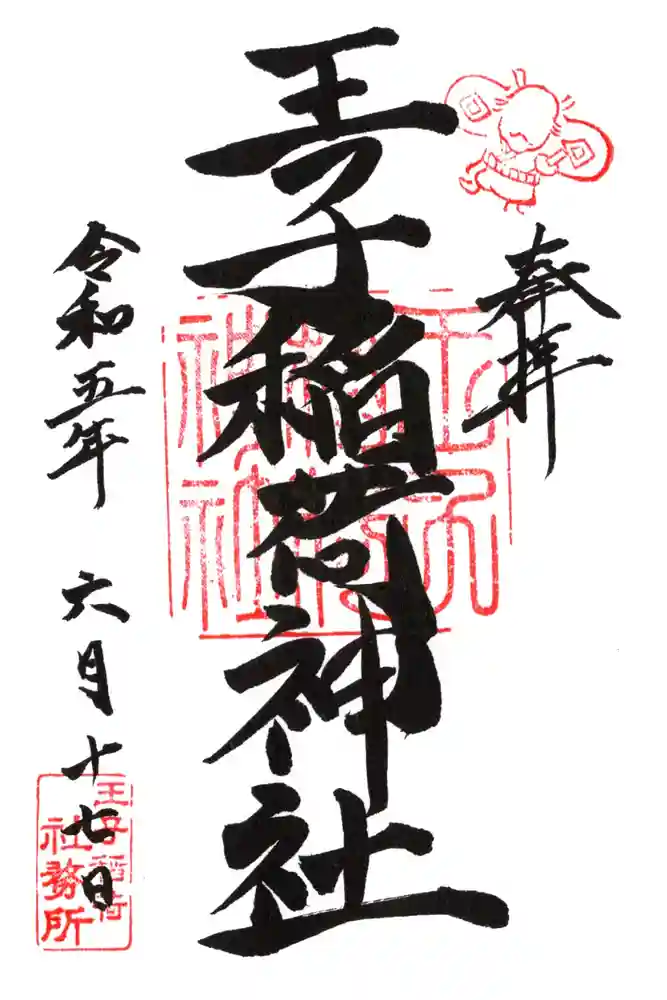 奉拝
王子稲荷神社
王子
稲荷
神社
令和五年 六月十七日
王子稲荷
社務所